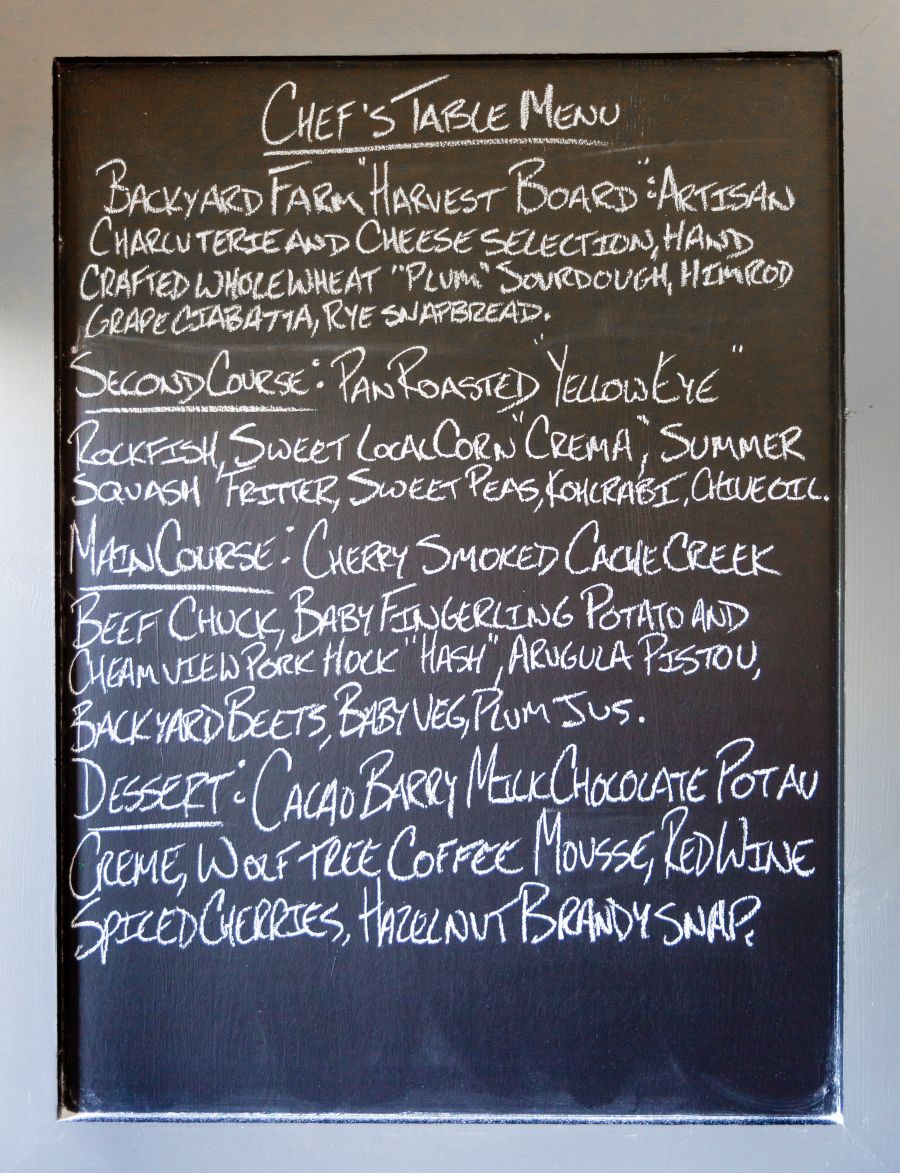 CHEF'S TABLE MENU
BACKYARD FARM "HARVEST BOARD": ARTISAN
CHARCUTERIE AND CHEESE SELECTION, HAND
CRAFTED WHOLE WHEAT "PLUM" SOURDOUGH, HIMROD
GRAPE CIABATTA, RYE SNAPBREAD.
SECOND COURSE: PAN ROASTED "YELLOW EYE"
ROCKFISH, SWEET LOCAL CORN "CREMA", SUMMER
SQUASH FRITTER, SWEET PEAS, KOHLRABI, CHIVE OIL.
MAIN COURSE: CHERRY SMOKED CACHE CREEK
BEEF CHUCK, BABY FINGERLING POTATO AND
CHEAMVIEW PORK HOCK "HASH", ARUGULA PISTOU,
BACKYARD BEETS, BABY VEG, PLUM JUS.
DESSERT: CACAO BARRY MILK CHOCOLATE POT AU
CREME, WOLF TREE COFFEE MOUSSE, RED WINE
SPICED CHERRIES, HAZELNUT BRANDY SNAP.